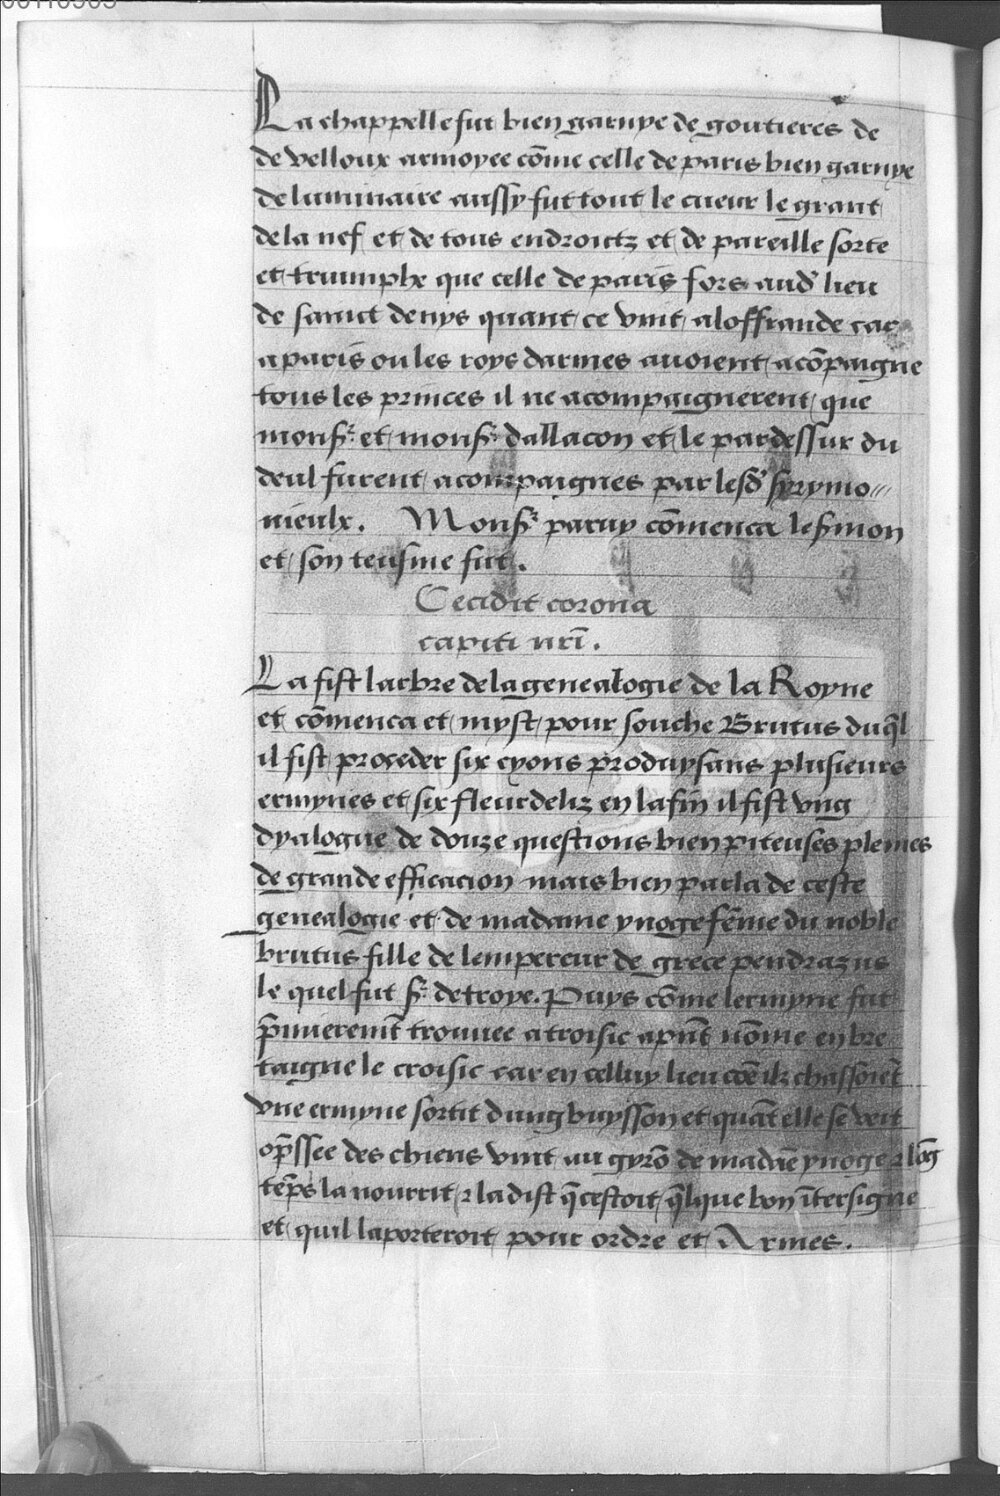 La chappelle fut bien garnye de goutieres de
de velloux armoyee cōme celle de paris bien garnye
de luminaire aussy fut tout le cueur le grant
de la nef et de tous endroictz et de pareille sorte
et triumphe que celle de paris fors aud' lieu
de sainct denys quant ce vint a loffrande car
a paris ou les roys darmes avoient acōpaigne
tous les princes il ne acompaignerent que
monsr et monsr dallacon et le pardessur du
deul furent acompaignes par lesd' syrymo
nieulx. Monsr paruy cōmenca le s̄mon
et son teusme fut.
Cecidit corona
capiti nr̄i.
La fist larbre de la genealogie de la Royne
et cōmenca et myst pour souche Brutus duq̄l
il fist proceder six cyons produysans plusieurs
ermynes et six fleurdeliz en la fin il fist vng
dyalogue de douze questions bien piteuses pleines
de grande efficacion mais bien parla de ceste
genealogie et de madame ynoge fēme du noble
brutus fille de lempereur de grece pendrazus
le quel fut sr de troye. Puys cōme lermyne fut
p̄mieremt̄ trouuee a troisic apn̄t nōme en bre
taigne le croisic car en celluy lieu cōe ilz chassoiēt
vne ermyne sortit dung buysson et quāt elle se veit
op̄ssee des chiens vint au gyrō de madāe ynoge ⁊ lōg
tēps la nourrit ⁊ la dist q̄ cestoit q̄lque bon ītersigne
et quil laporteroit pour ordre et Armes.